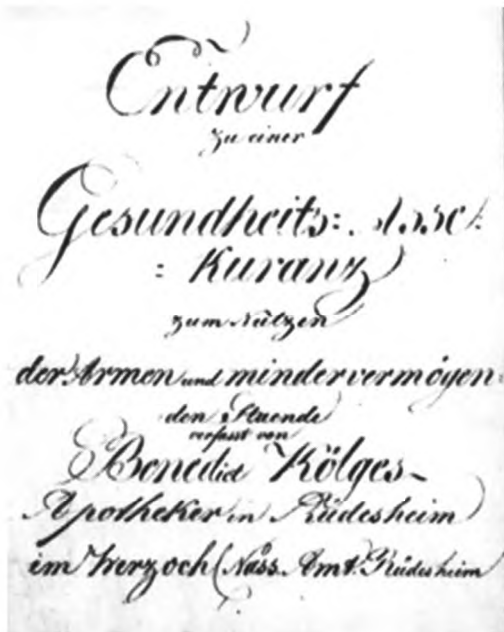 Entwurf
zu einer
Gesundheits: Asse:
: Kuranz
zum Nützen
der Armen und mindervermögen=
den Staende
verfasst von
Benedict Kölges
Apotheker in Rüdesheim
im Herzoch (Nass. Amt. Rüdesheim